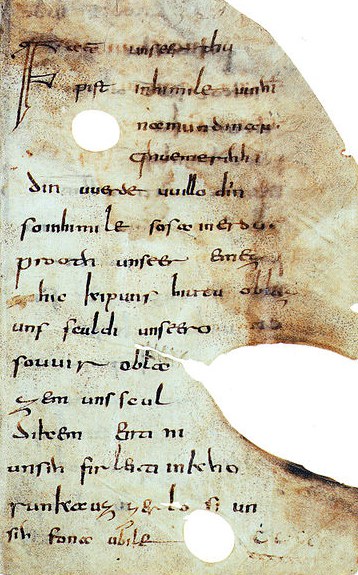 Fater unseer thu
pist inhimile uuihi
namun dinan
qhueme rihhi
din uuerde uuillo diin
soinhimile sosa inerdu
prooth unseer emez
hic kipuns hiutu oblaz
uns sculdi unseero
souuir obla
zem uns scul
dikem enti ni
unsih firleiti in kho
runka uzzer losi un
sih fona ubile